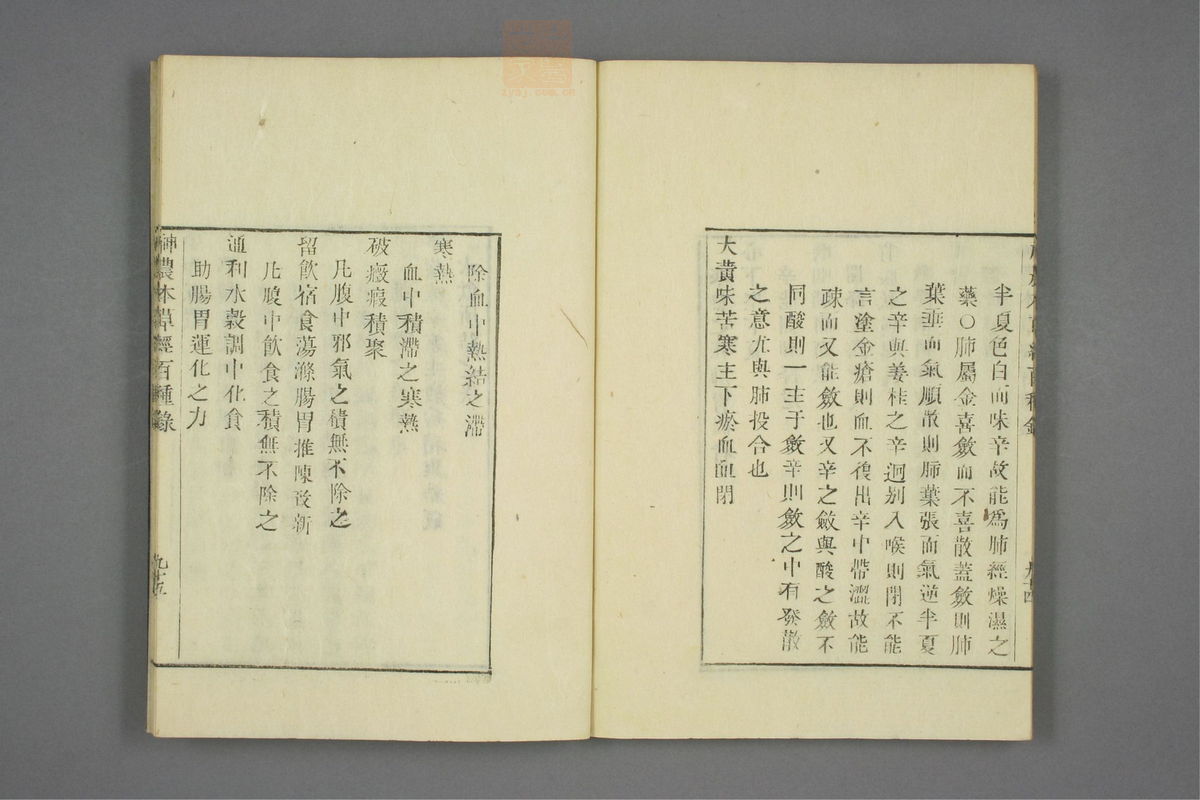 半夏色白而味辛故能爲肺經燥濕之
藥○肺屬金喜斂而不喜散蓋斂則肺
葉垂而氣順散則肺葉張而氣逆半夏
之辛與姜桂之辛迥别入喉則閉不能
言塗金瘡則血不復出辛中帶澀故能
疎而又能斂也又辛之斂與酸之斂不
同酸則一主于斂辛則斂之中有發散
之意尤與肺投合也
大黄味苦寒主下瘀血血閉
九十四
除血中熱結之滯
寒熱
血中積滯之寒熱
破癥瘕積聚
凡腹中邪氣之積無不除之
留飲宿食蕩滌腸胃推陳致新
凡腹中飲食之積無不除之
通利水穀調中化食
助腸胃運化之力
神農本草經百種錄
九十五
zysj.com.cn